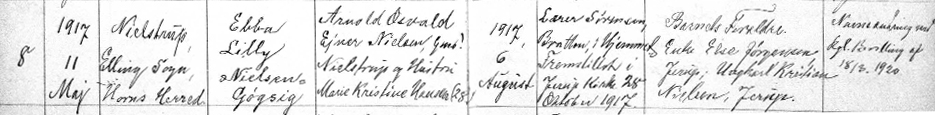 8
1917
11
Maj
Nielstrup,
Elling Sogn,
Horns Herred
Ebba
Lilly
"Nielsen"
Gögsig
Arnold Osvald
Ejner Nielsen,
Nielstrup og Hustru
Marie Kristine Hansen (28)
1917,
6
August
Lærer Sørensen,
Bratten, i Hjemmet
Fremstillet i
Jerup Kirke 28
October 1917
Barnets Forældre.
Enke Else Jörgensen
Jerup, Ungkarl Kristian
Nielsen, Jerup.
Navneændring ved
Kgl. Bevilling af
18/3. 1920